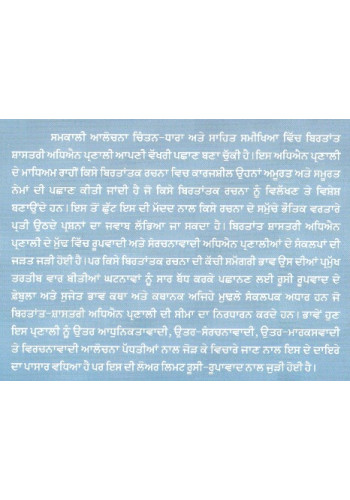 ਸਮਕਾਲੀ ਆਲੋਚਨਾ ਚਿੰਤਨ-ਧਾਰਾ ਅਤੇ ਸਾਹਿਤ ਸਮੀਖਿਆ ਵਿੱਚ ਬਿਰਤਾਂਤ
ਸ਼ਾਸਤਰੀ ਅਧਿਐਨ ਪ੍ਰਣਾਲੀ ਆਪਣੀ ਵੱਖਰੀ ਪਛਾਣ ਬਣਾ ਚੁੱਕੀ ਹੈ। ਇਸ ਅਧਿਐਨ ਪ੍ਰਣਾਲੀ
ਦੇ ਮਾਧਿਅਮ ਰਾਹੀਂ ਕਿਸੇ ਬਿਰਤਾਂਤਕ ਰਚਨਾ ਵਿਚ ਕਾਰਜਸ਼ੀਲ ਉਹਨਾਂ ਅਮੂਰਤ ਅਤੇ ਸਮੂਰਤ
ਨੇਮਾਂ ਦੀ ਪਛਾਣ ਕੀਤੀ ਜਾਂਦੀ ਹੈ ਜੋ ਕਿਸੇ ਬਿਰਤਾਂਤਕ ਰਚਨਾ ਨੂੰ ਵਿਲੱਖਣ ਤੇ ਵਿਸ਼ੇਸ਼
ਬਣਾਉਂਦੇ ਹਨ। ਇਸ ਤੋਂ ਛੁੱਟ ਇਸ ਦੀ ਮੱਦਦ ਨਾਲ ਕਿਸੇ ਰਚਨਾ ਦੇ ਸਮੁੱਚੇ ਭੌਤਿਕ ਵਰਤਾਰੇ
ਪ੍ਰਤੀ ਉਠਦੇ ਪ੍ਰਸ਼ਨਾਂ ਦਾ ਜਵਾਬ ਲੱਭਿਆ ਜਾ ਸਕਦਾ ਹੈ। ਬਿਰਤਾਂਤ ਸ਼ਾਸਤਰੀ ਅਧਿਐਨ
ਪ੍ਰਣਾਲੀ ਦੇ ਮੁੱਢ ਵਿੱਚ ਰੂਪਵਾਦੀ ਅਤੇ ਸੰਰਚਨਾਵਾਦੀ ਅਧਿਐਨ ਪ੍ਰਣਾਲੀਆਂ ਦੇ ਸੰਕਲਪਾਂ ਦੀ
ਜੜਤ ਜੜੀ ਹੋਈ ਹੈ। ਪਰ ਕਿਸੇ ਬਿਰਤਾਂਤਕ ਰਚਨਾ ਦੀ ਕੱਚੀ ਸਮੱਗਰੀ ਭਾਵ ਉਸ ਦੀਆਂ ਪ੍ਰਮੁੱਖ
ਤਰਤੀਬ ਵਾਰ ਬੀਤੀਆਂ ਘਟਨਾਵਾਂ ਨੂੰ ਸਾਰ ਬੱਧ ਕਰਕੇ ਪਛਾਣਨ ਲਈ ਰੂਸੀ ਰੂਪਵਾਦ ਦੇ
ਫ਼ੇਬੁਲਾ ਅਤੇ ਸੁਜੇਤ ਭਾਵ ਕਥਾ ਅਤੇ ਕਥਾਨਕ ਅਜਿਹੇ ਮੁਢਲੇ ਸੰਕਲਪਕ ਅਧਾਰ ਹਨ ਜੋ
ਬਿਰਤਾਂਤ-ਸ਼ਾਸਤਰੀ ਅਧਿਐਨ ਪ੍ਰਣਾਲੀ ਦੀ ਸੀਮਾ ਦਾ ਨਿਰਧਾਰਨ ਕਰਦੇ ਹਨ। ਭਾਵੇਂ ਹੁਣ
ਇਸ ਪ੍ਰਣਾਲੀ ਨੂੰ ਉਤਰ ਆਧੁਨਿਕਤਾਵਾਦੀ, ਉਤਰ-ਸੰਰਚਨਾਵਾਦੀ, ਉਤਰ-ਮਾਰਕਸਵਾਦੀ
ਤੇ ਵਿਰਚਨਾਵਾਦੀ ਆਲੋਚਨਾ ਪੱਧਤੀਆਂ ਨਾਲ ਜੋੜ ਕੇ ਵਿਚਾਰੇ ਜਾਣ ਨਾਲ ਇਸ ਦੇ ਦਾਇਰੇ
ਦਾ ਪਾਸਾਰ ਵਧਿਆ ਹੈ ਪਰ ਇਸ ਦੀ ਲੋਅਰ ਲਿਮਟ ਰੂਸੀ-ਰੂਪਾਵਾਦ ਨਾਲ ਜੁੜੀ ਹੋਈ ਹੈ।